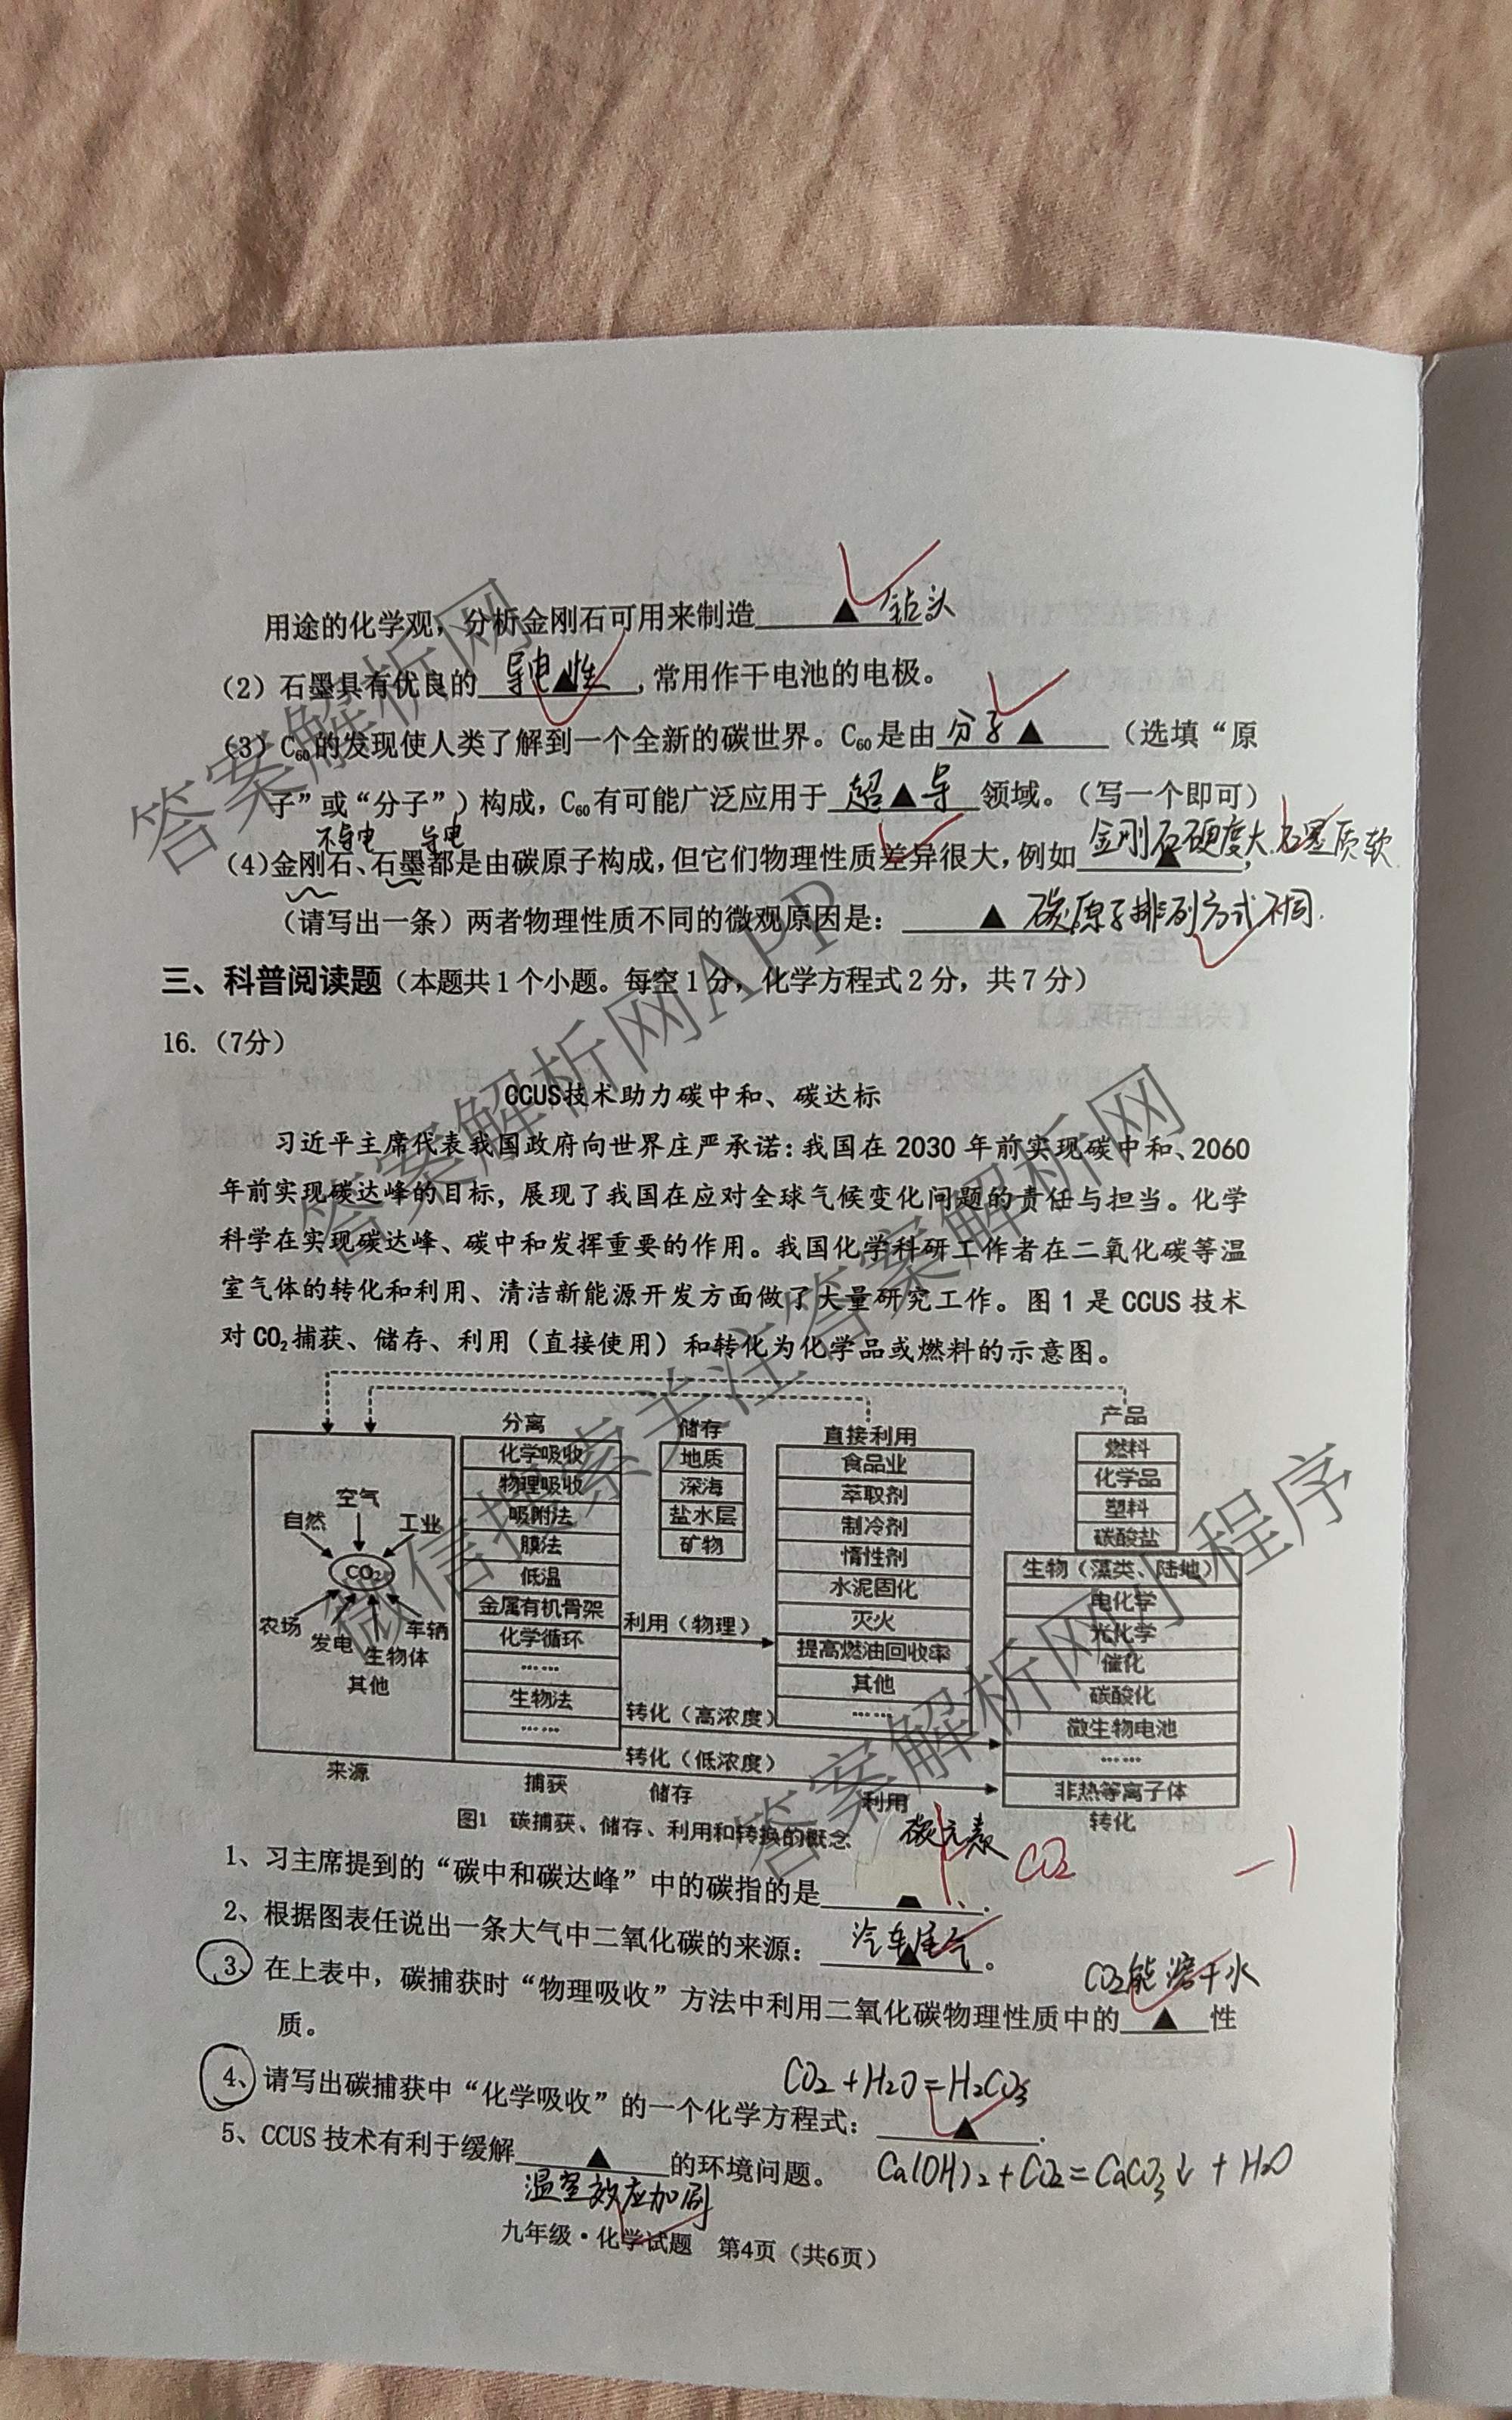 用途的化学观，分析金刚石可用来制造▲ 钻头
（2）石墨具有优良的 导电▲性 ，常用作干电池的电极。
（3）C₆₀的发现使人类了解到一个全新的碳世界。C₆₀是由 分子▲ （选填“原
子”或“分子”）构成，C₆₀有可能广泛应用于 超▲导 领域。（写一个即可）
不导电 导电
（4）金刚石、石墨都是由碳原子构成，但它们物理性质差异很大，例如 ▲ 金刚石硬度大、石墨质软，
（请写出一条）两者物理性质不同的微观原因是：▲ 碳原子排列方式不同.
三、科普阅读题（本题共1个小题。每空1分，化学方程式2分，共7分）
16.（7分）
CCUS技术助力碳中和、碳达标
习近平主席代表我国政府向世界庄严承诺：我国在 2030 年前实现碳中和、2060
年前实现碳达峰的目标，展现了我国在应对全球气候变化问题的责任与担当。化学
科学在实现碳达峰、碳中和发挥重要的作用。我国化学科研工作者在二氧化碳等温
室气体的转化和利用、清洁新能源开发方面做了大量研究工作。图 1 是 CCUS 技术
对 CO₂捕获、储存、利用（直接使用）和转化为化学品或燃料的示意图。
空气
自然
工业
CO₂
农场
发电
生物体
车辆
其他
来源
分离
化学吸收
物理吸收
吸附法
膜法
低温
金属有机骨架
化学循环
……
生物法
……
捕获
储存
地质
深海
盐水层
矿物
利用（物理）
转化（高浓度）
转化（低浓度）
储存
直接利用
食品业
萃取剂
制冷剂
惰性剂
水泥固化
灭火
提高燃油回收率
其他
……
利用
产品
燃料
化学品
塑料
碳酸盐
生物（藻类、陆地）
电化学
光化学
催化
碳酸化
微生物电池
……
非热等离子体
转化
图1 碳捕获、储存、利用和转换的概念
碳元素 CO₂ -1
1、习主席提到的“碳中和碳达峰”中的碳指的是▲.
2、根据图表任说出一条大气中二氧化碳的来源：汽车尾气▲。
CO₂能溶于水
3、在上表中，碳捕获时“物理吸收”方法中利用二氧化碳物理性质中的▲性
质。
CO₂+H₂O=H₂CO₃
4、请写出碳捕获中“化学吸收”的一个化学方程式：▲.
Ca(OH)₂+CO₂=CaCO₃↓+H₂O
5、CCUS 技术有利于缓解▲的环境问题。
温室效应加剧
九年级·化学试题 第4页（共6页）
答案解析网
答案解析网APP
微信搜索关注答案解析网
答案解析网小程序